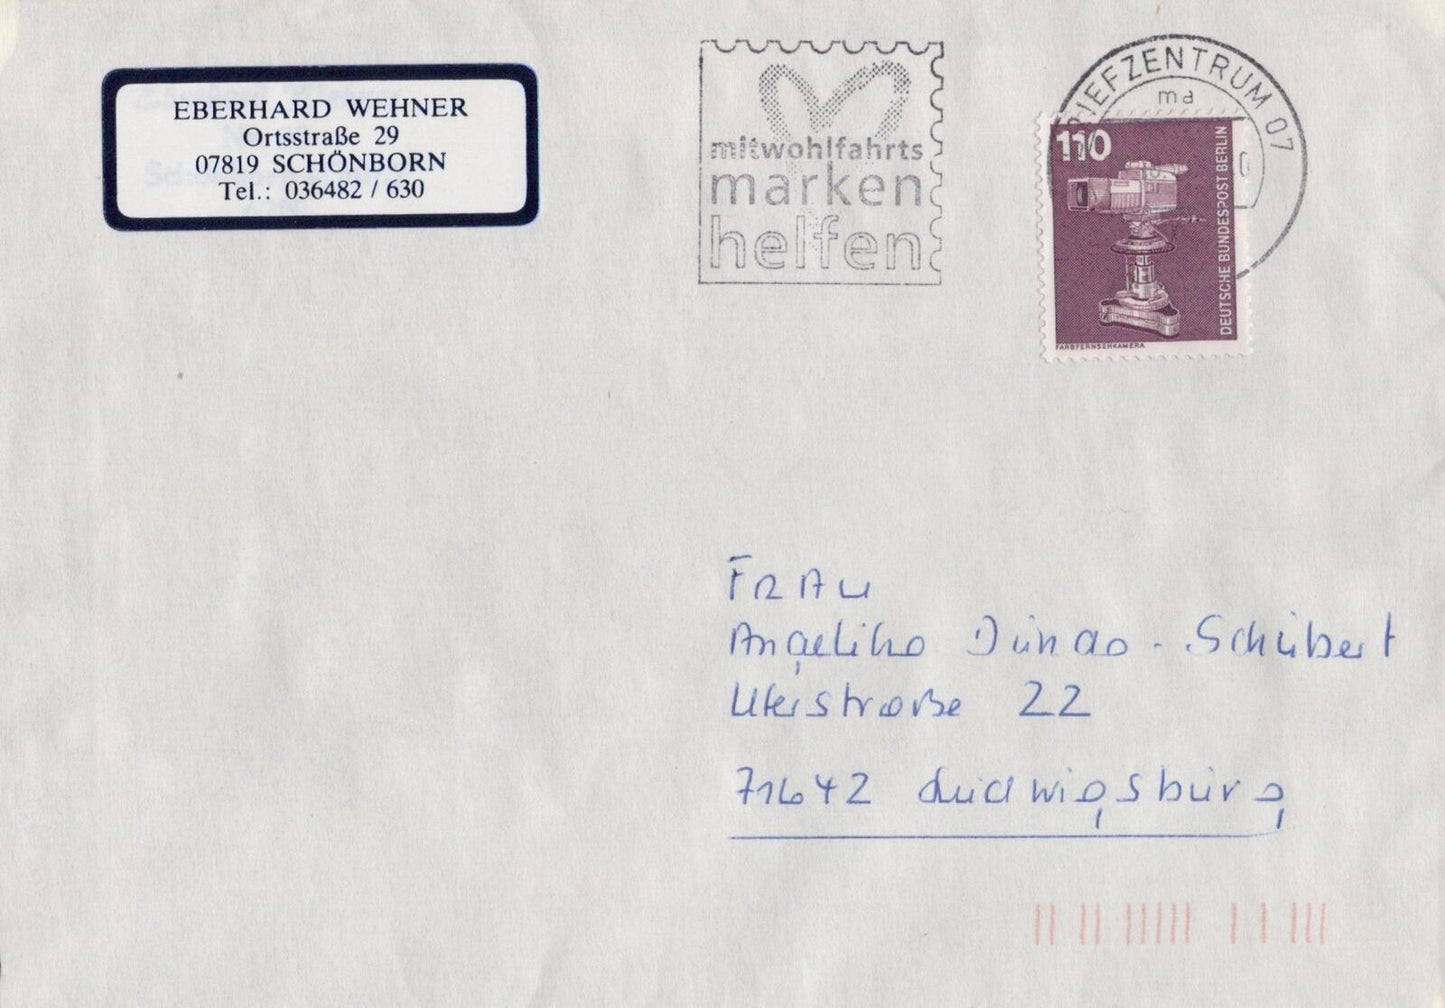 EBERHARD WEHNER
Ortsstraße 29
07819 SCHÖNBORN
Tel.: 036482 / 630
mitwohlfahrts
marken
helfen
BRIEFZENTRUM 07
ma
110
DEUTSCHE BUNDESPOST BERLIN
FARBFERNSEHKAMERA
FRAU
Angelika Dunao-Schubert
Uferstraße 22
71642 Ludwigsburg